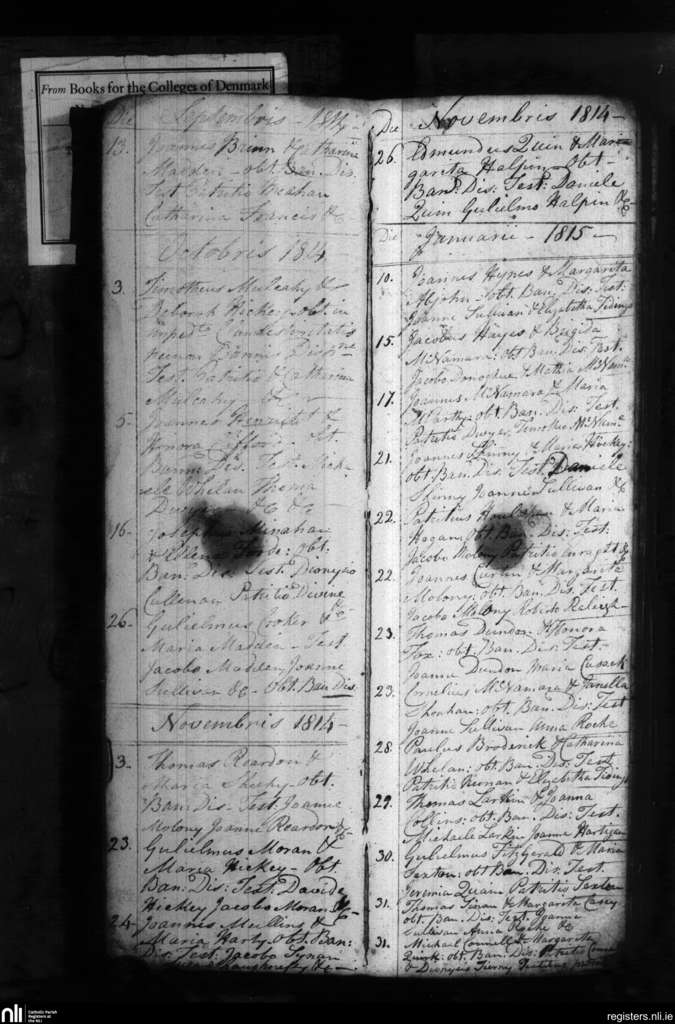 From Books for the Colleges of Denmark
Die Septembris - 1814 -
13. Joannes Brinn & Catharina
Madden - obt. Ban. Dis.
Test. Patritio Meahan
Catharina Francis &c
Octobris 1814
3. Timotheus Mulcahy &
Deborah Hickey - obt. in
Imped.to Clandestinitatis
Test. Patritio & Catharina
Mulcahy &c
5. Joannes &
Honora obt.
Bann. Dis. Test. Mich-
aele Whelan Thoma
&c &c
16. Josephus Minahan
& Ellena Forde: obt.
Ban. Dis. Test. Dionysio
Cullenan Patritio Divine
26. Gulielmus Cooker &
Maria Madden - Test
Jacobo Madden Joanne
Sullivan &c - Obt. Ban. Dis.
Novembris 1814 -
3. Thomas Reardon &
Maria Sheehy - obt.
Ban. Dis. Test. Joanne
Molony Joanne Reardon &c
23. Gulielmus Moran &
Maria Hickey - Obt.
Ban: Dis: Test. Davide
Hickey Jacobo Moran &c
24. Joannes Mullins &
Maria Harty Obt. Ban:
Dis. Test. Jacobo Tynan
&c -
Die Novembris 1814 -
26. Edmundus Quin & Mar-
gareta Halpin - Obt -
Ban: Dis: Test: Daniele
Quin Gulielmo Halpin &c
Die Januarii - 1815 -
10. Joannes Hynes & Margarita
- obt. Ban. Dis. Test:
Joanne Sullivan & Elizabetha
15. Jacobus Hayes & Brigida
McNamara: obt Ban. Dis. Test.
Jacobo Donoghue & Mathia McNam
17. Joannes McNamara & Maria
McCarthy: obt. Ban. Dis: Test.
Patritio Dwyer Timotheo McNam
21. Joannes Skinny & Maria Hickey:
obt. Ban. Dis. Test. Daniele
Skinny Joanne Sullivan &c
22. Patritius & Maria
Hogan. Obt. Ban. Dis: Test:
Jacobo Molony Patritio Enraght &c
22. Joannes Curtin & Margarita
Molony: obt. Ban. Dis. Test.
Jacobo Molony Roberto Raleigh
23. Thomas Dundon & Honora
Fox: obt: Ban. Dis: Test.
Joanne Dundon Maria Cusack
23. Cornelius McNamara &
Shonhan: obt. Ban. Dis: Test
Joanne Sullivan Anna Roche
28. Paulus Broderick & Catharina
Whelan: obt Ban. Dis: Test
Patritio Kernan & Elizabetha
29. Thomas Larkin & Joanna
Collins: obt. Ban. Dis: Test.
Michaele Larkin Joanne Hartigan
30. Gulielmus FitzGerald & Maria
Sexton: obt Ban. Dis. Test.
Jeremia Quain Patritio Sexton
31. Thomas & Margarita Casey
obt. Ban. Dis: Test. Joanne
Sullivan Anna Roche &c
31. Michael Connell & Margarita
Quirk: obt. Ban. Dis: Patritio
& Dionysio Tierny
nli
Catholic Parish
Registers at
the NLI
registers.nli.ie